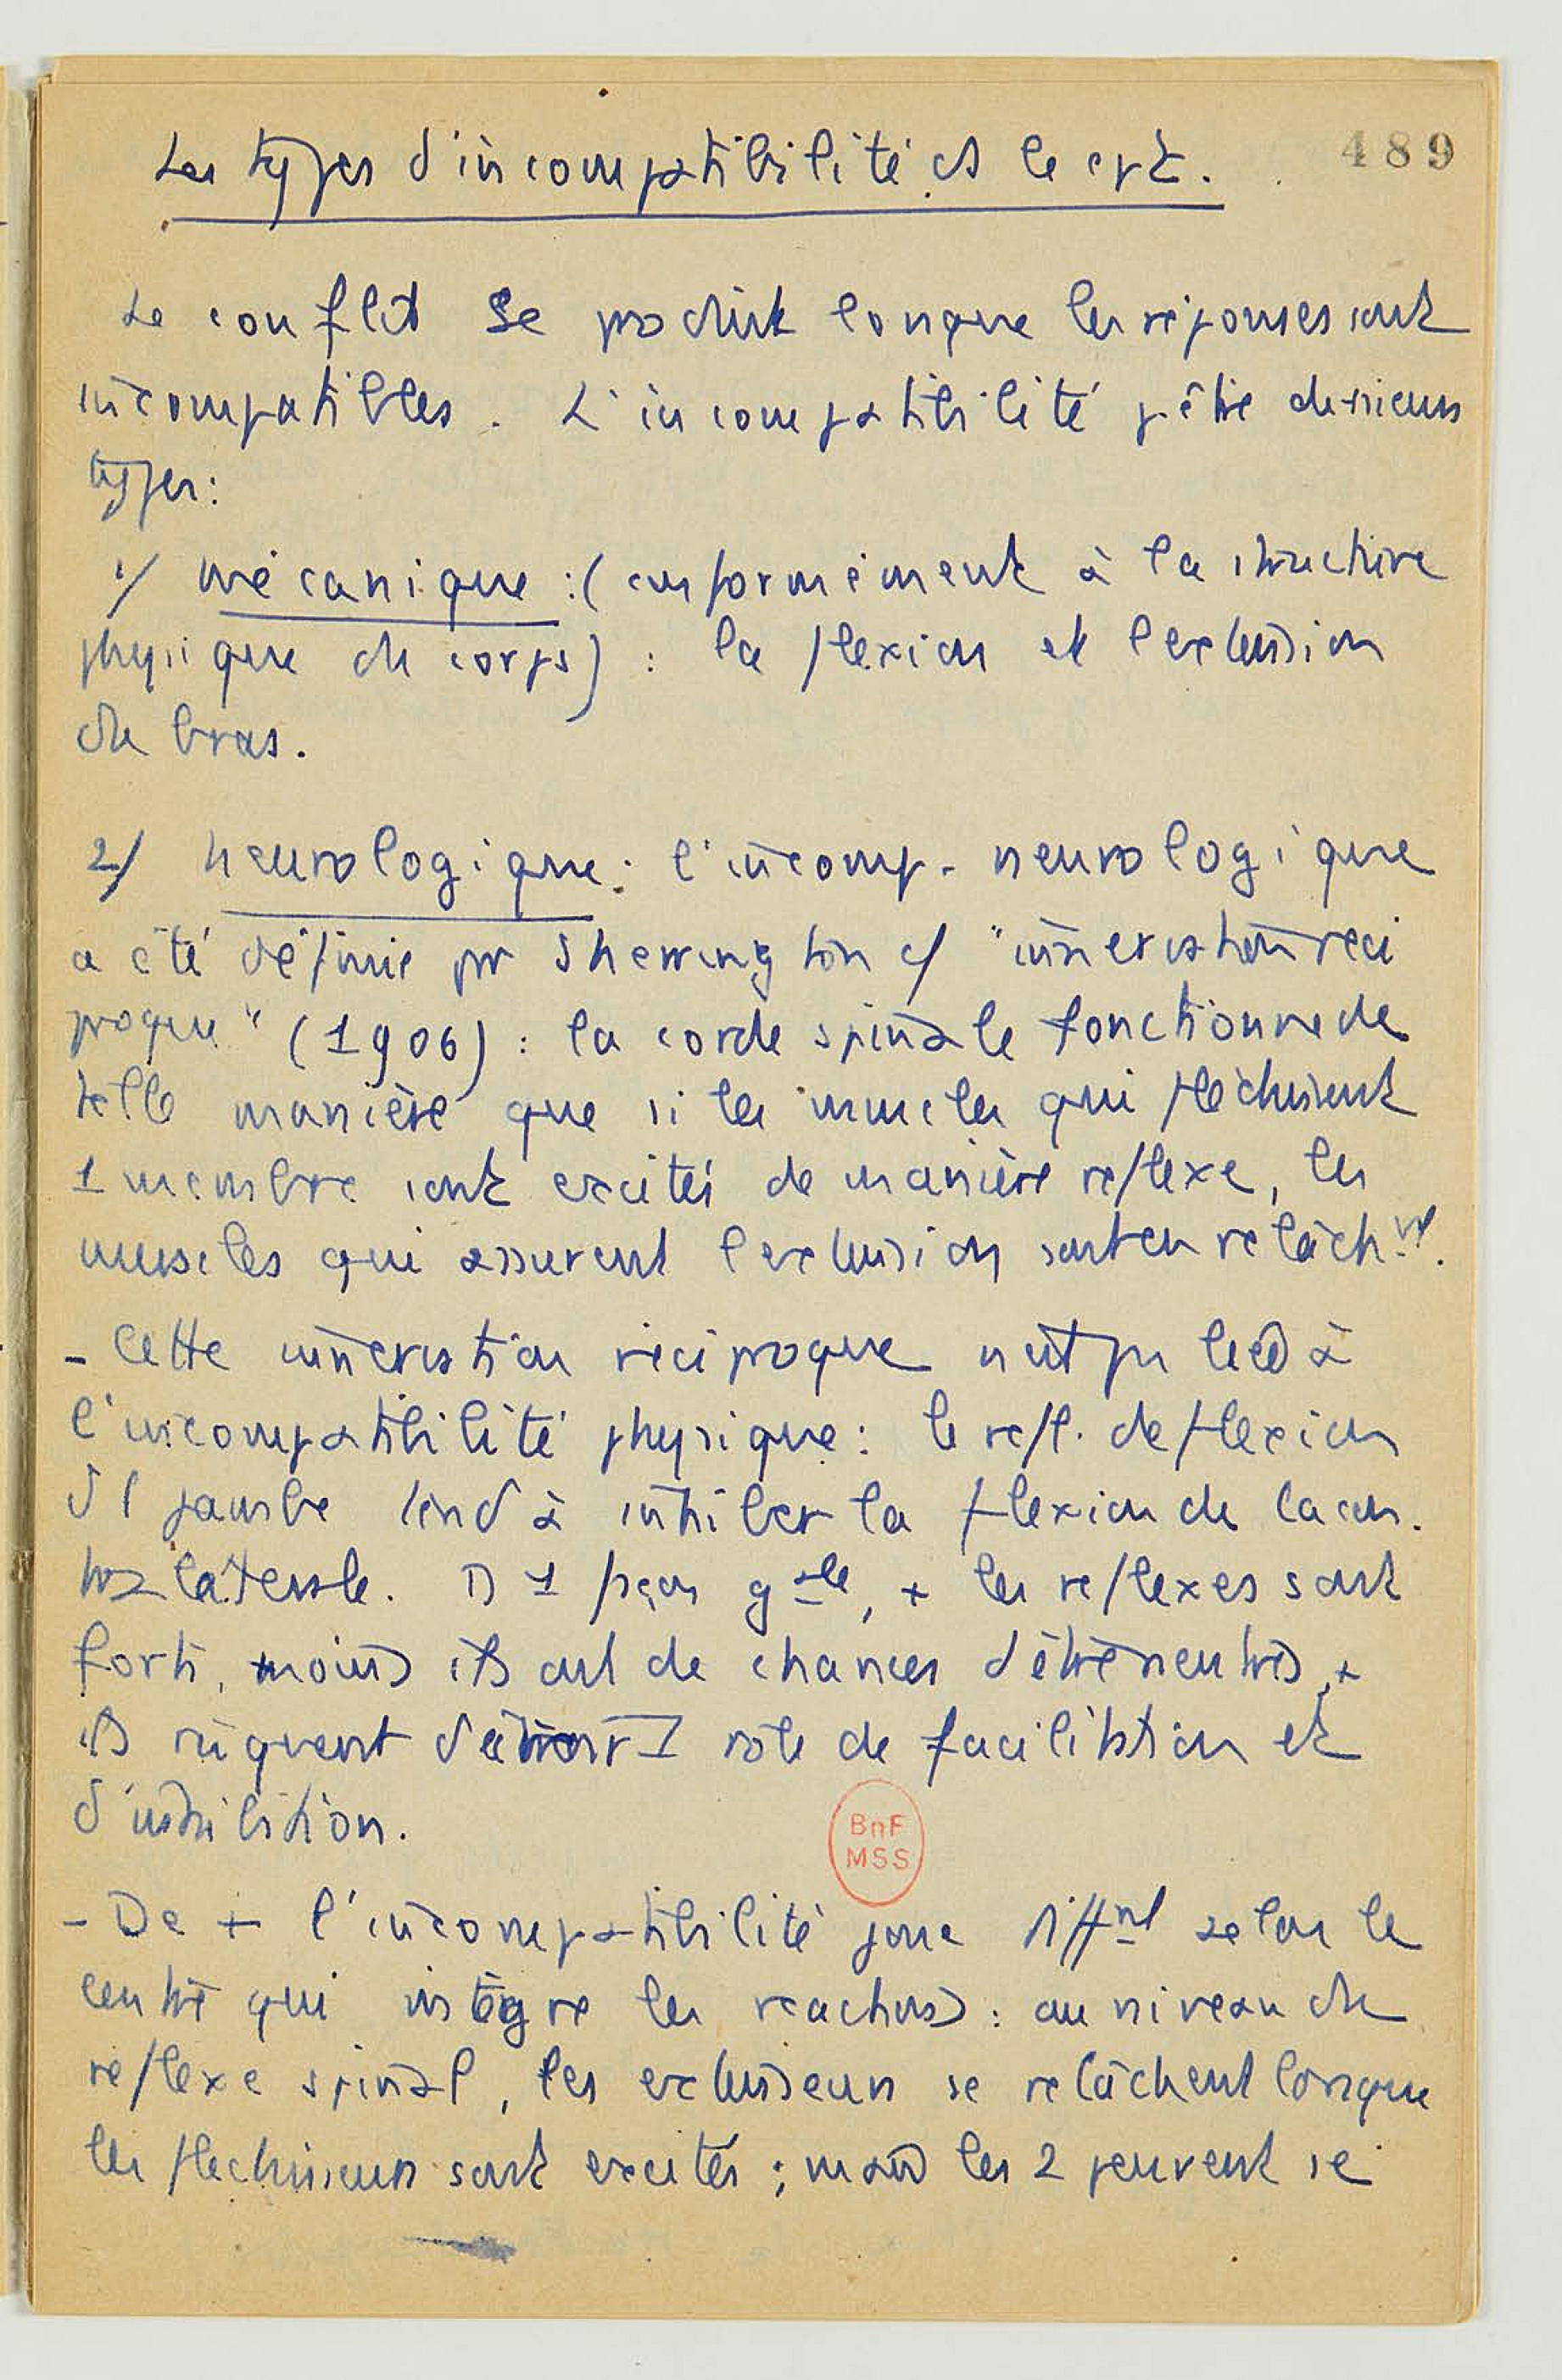 Les types d'incompatibilité ds le cpt.
489
Le conflit se produit lorsque les réponses sont
incompatibles. L'incompatibilité p. être de plusieurs
types:
1/ mécanique : (conformément à la structure
physique du corps) : la flexion et l'extension
du bras.
2/ neurologique : l'incomp. neurologique
a été définie par Sherrington c/ "innervation réci
proque" (1906) : la corde spinale fonctionne de
telle manière que si les muscles qui fléchissent
1 membre sont excités de manière réflexe, les
muscles qui assurent l'extension sont en relâchmt.
- Cette innervation réciproque n'est pas liée à
l'incompatibilité physique : le refl. de flexion
d'1 jambe tend à inhiber la flexion de la con.
trolatérale. D 1 façon gale, + les reflexes sont
forts, moins ils ont de chances d'être neutres, +
ils risquent d'avoir 1 rôle de facilitation et
d'inhibition.
BnF
MSS
- De + l'incompatibilité joue diffnt selon le
centre qui intègre les reactions : au niveau du
réflexe spinal, les extenseurs se relâchent lorsque
les fléchisseurs sont excités ; mais les 2 peuvent se